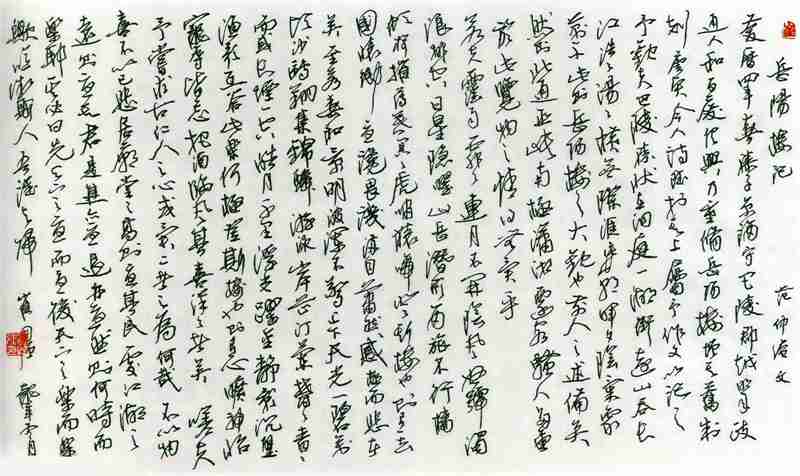 岳陽樓記 范仲淹文
慶曆四年春滕子京謫守巴陵郡越明年政
通人和百廢俱興乃重修岳陽樓增其舊制
刻唐賢今人詩賦於其上屬予作文以記之
予觀夫巴陵勝狀在洞庭一湖銜遠山吞長
江浩浩湯湯橫無際涯朝暉夕陰氣象
萬千此則岳陽樓之大觀也前人之述備矣
然則北通巫峽南極瀟湘遷客騷人多會
於此覽物之情得無異乎
若夫霪雨霏霏連月不開陰風怒號濁
浪排空日星隱曜山岳潛形商旅不行檣
傾楫摧薄暮冥冥虎嘯猿啼登斯樓也則有去
國懷鄉憂讒畏譏滿目蕭然感極而悲者
矣至若春和景明波瀾不驚上下天光一碧萬
頃沙鷗翔集錦鱗游泳岸芷汀蘭鬱鬱青青
或長煙一空皓月千里浮光躍金靜影沉璧
漁歌互答此樂何極登斯樓也則有心曠神怡
寵辱皆忘把酒臨風其喜洋洋者矣 嗟夫
予嘗求古仁人之心或異二者之為何哉不以物
喜不以己悲居廟堂之高則憂其民處江湖之
遠則憂其君是進亦憂退亦憂然則何時而
樂耶其必曰先天下之憂而憂後天下之樂而樂
歟噫微斯人吾誰與歸